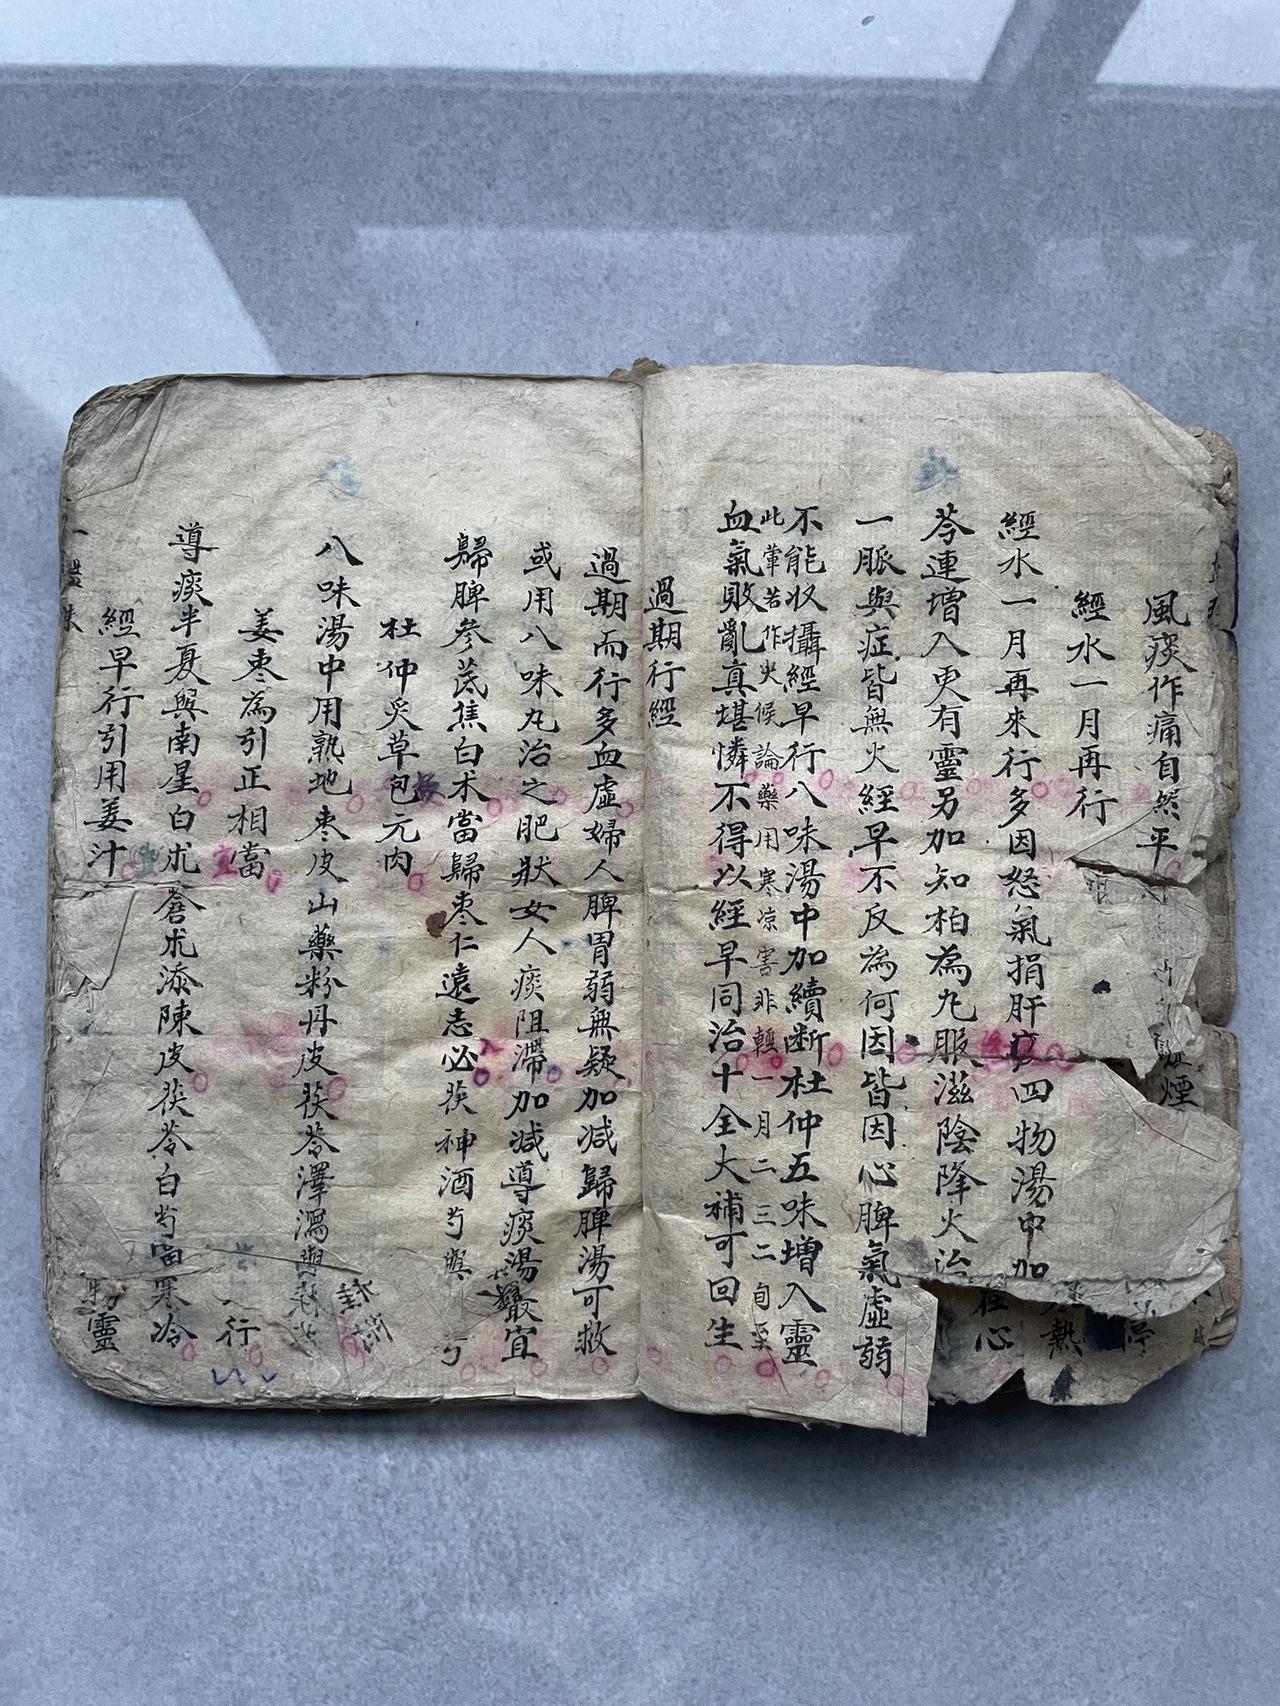 風痰作痛自然平
經水一月再行
經水一月再來行多因怒氣損肝 四物湯中加
芩連增入更有靈另加知柏為丸服滋陰降火治
一脈與症皆無火經早不反為何因皆因心脾氣虛弱
不能收攝經早行八味湯中加續断杜仲五味增入靈
此葷若作火候論藥用寒凉害非輕一月二三二旬至
血氣敗亂真堪憐不得以經早同治十全大補可回生
過期行經
過期而行多血虛婦人脾胃弱無疑加减歸脾湯可救
或用八味丸治之肥狀女人痰阻滯加减導痰湯最宜
歸脾參芪焦白术當歸枣仁遠志必茯神酒芍
杜仲炙草包元肉
八味湯中用熟地枣皮山藥粉丹皮茯苓澤瀉與
桂
姜枣為引正相當
行
導痰半夏與南星白朮蒼朮添陳皮茯苓白芍 寒冷
經早行引用姜汁
靈
煙
心
熱